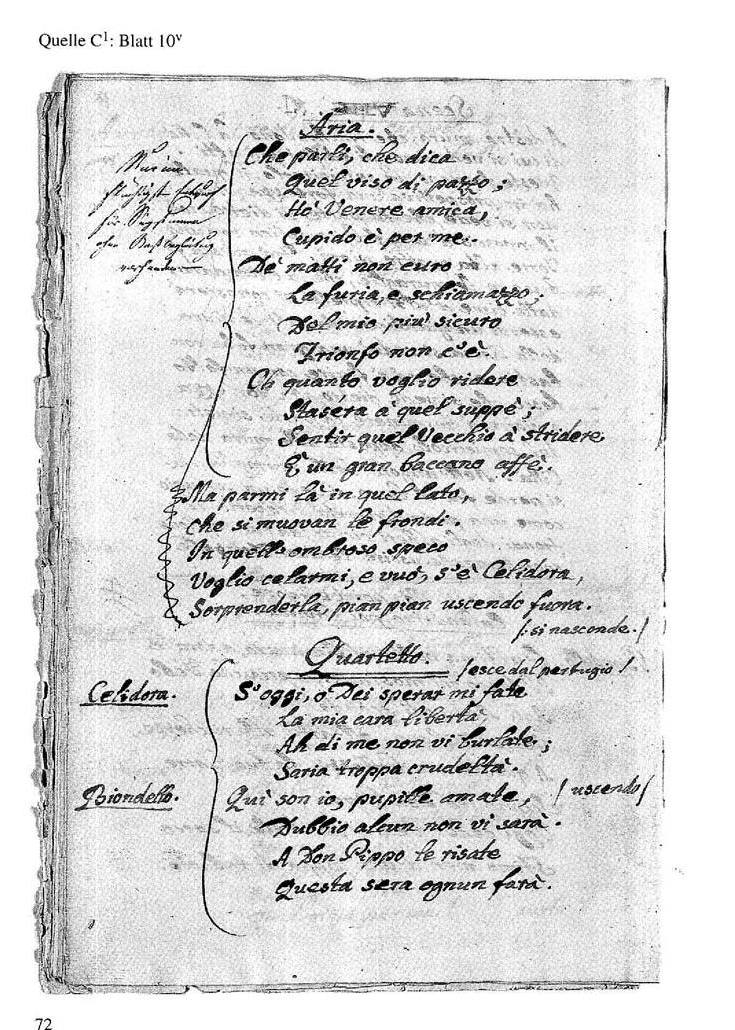 Quelle C¹: Blatt 10ᵛ
Aria.
Che parli, che dica
Quel viso di pazzo;
Hò Venere amica,
Cupido è per me.
Dè matti non curo
La furia, e schiamazzo;
Del mio più sicuro
Trionfo non c'è.
Oh quanto voglio ridere
Staséra à quel suppè;
Sentir quel Vecchio à stridere,
È un gran baccano affè.
Ma parmi là in quel lato,
Che si muovan le frondi.
In quell'ombroso speco
Voglio celarmi, e vuò, s'è Celidora,
Sorprenderla, pian pian uscendo fuora.
/: si nasconde. /
Nur im
flüchtigst Entwurf
für Singstimme
ohne Baßbegleitung
vorhanden
Quartetto. /esce dal pertugio/
Celidora. S'oggi, ò Dei sperar mi fate
La mia cara libertà,
Ah di me non vi burlate;
Saria troppa crudeltà.
Biondello. Quì son io, pupille amate, /uscendo/
Dubbio alcun non vi sarà.
A Don Pippo le risate
Questa sera ognun farà.
72